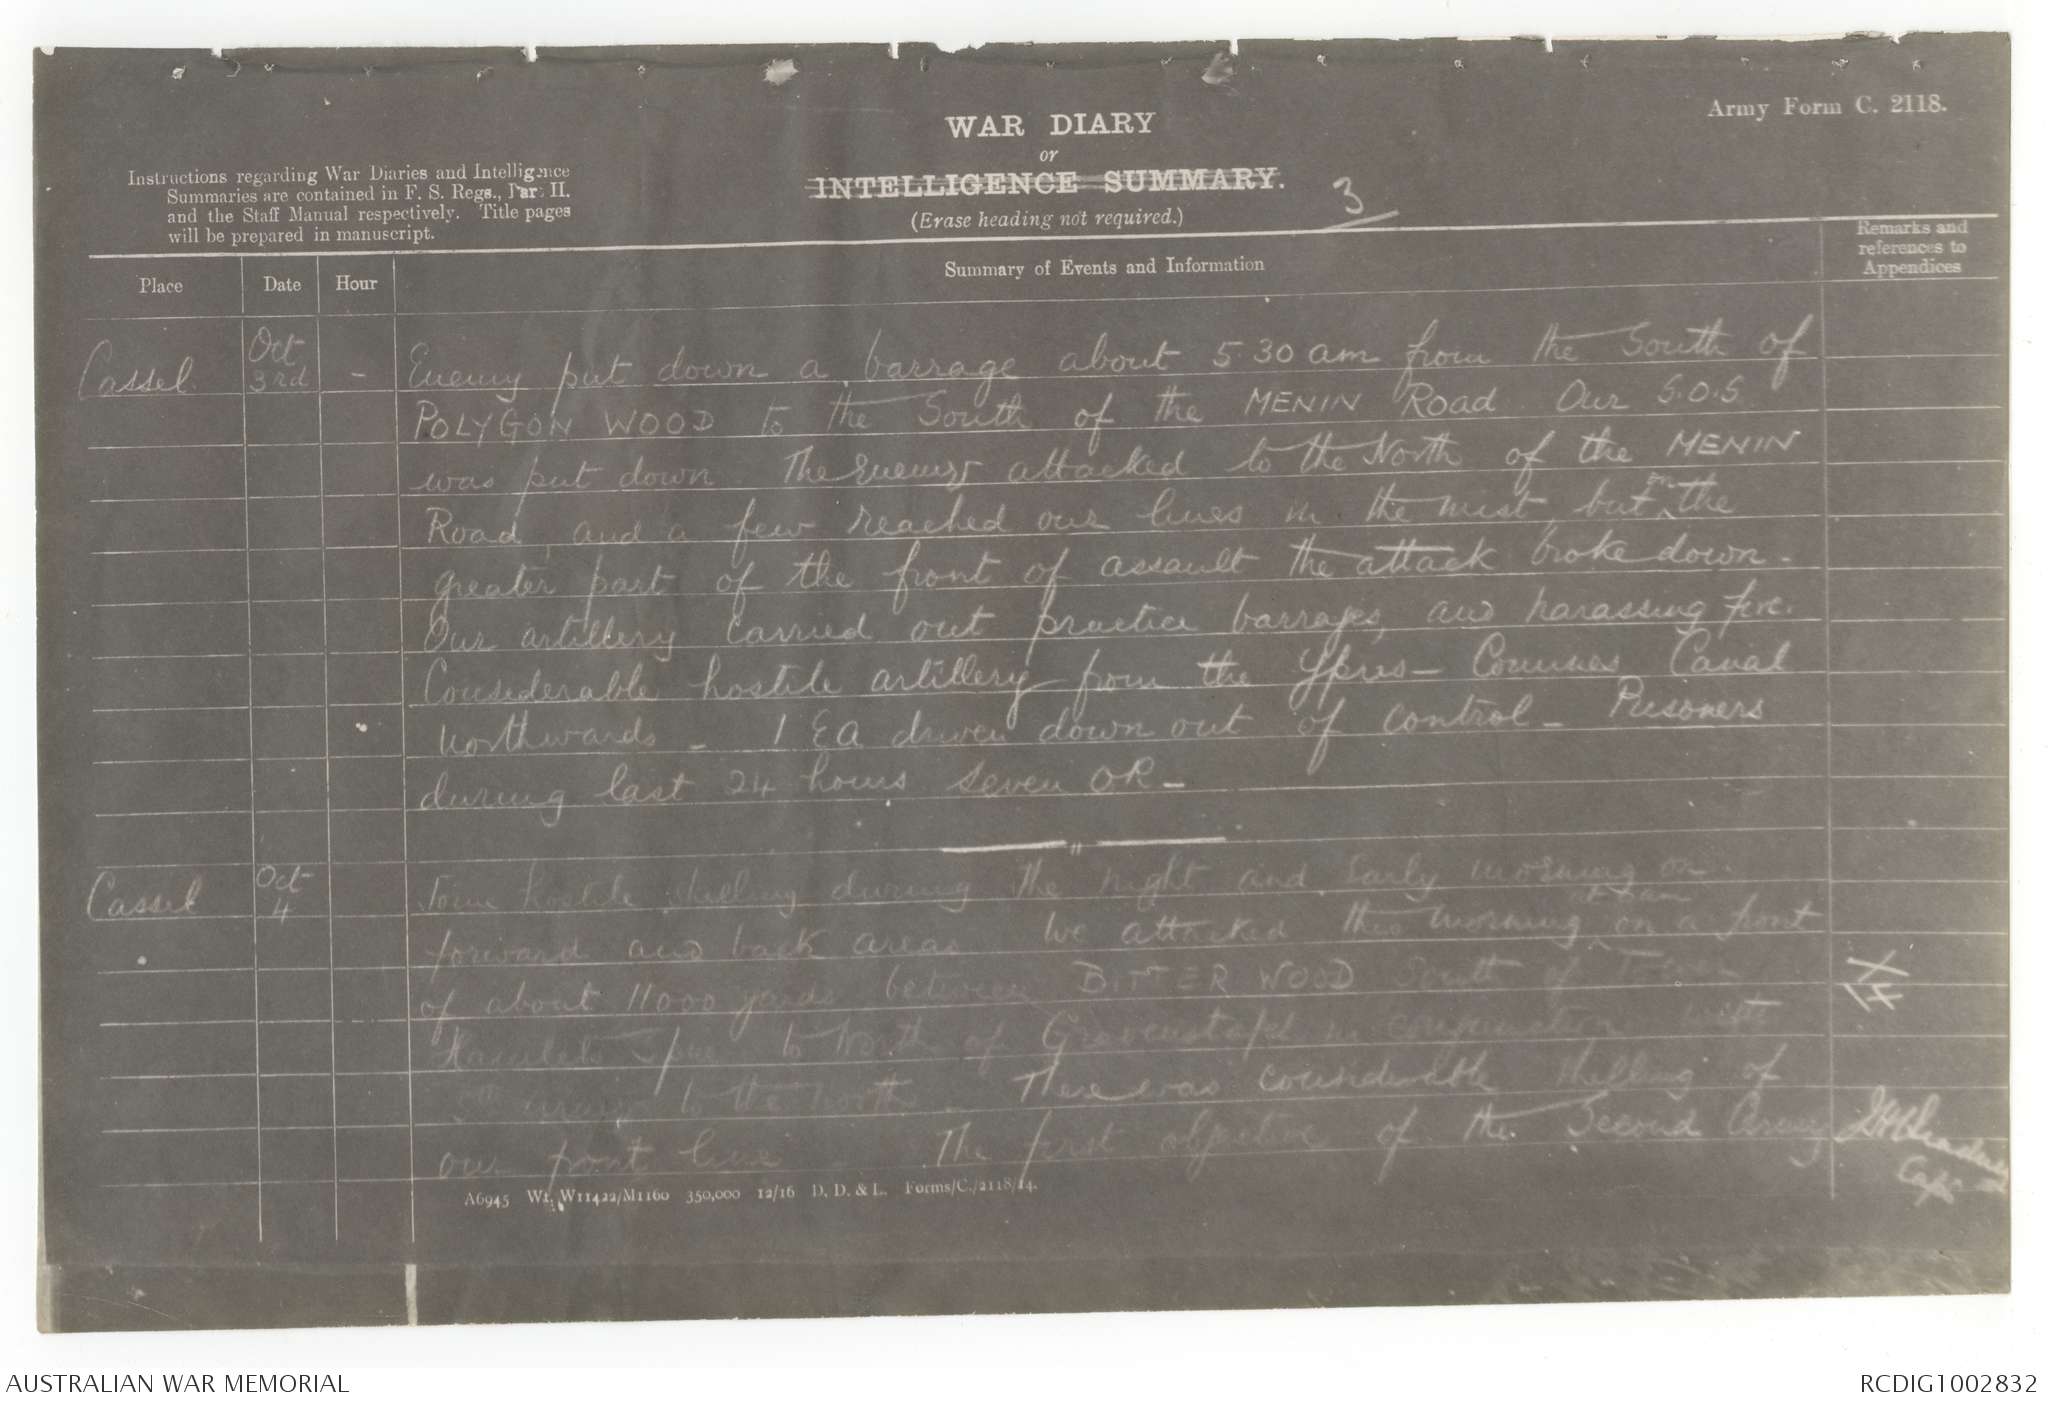 Army Form C. 2118.
WAR DIARY
or
INTELLIGENCE SUMMARY.
(Erase heading not required.)
3
Instructions regarding War Diaries and Intelligence
Summaries are contained in F. S. Regs., Part II.
and the Staff Manual respectively. Title pages
will be prepared in manuscript.
Place Date Hour Summary of Events and Information Remarks and
references to
Appendices
Cassel Oct 3rd - Enemy put down a barrage about 5.30 am from the South of
POLYGON WOOD to the South of the MENIN Road Our S.O.S
was put down The Enemy attacked to the North of the MENIN
Road, and a few reached our lines in the mist, but on the
greater part of the front of assault the attack broke down -
Our artillery carried out practice barrages, and harassing fire.
Considerable hostile artillery from the Ypres - Comines Canal
northwards - 1 EA driven down out of control - Prisoners
during last 24 hours seven OR -
"
Cassel Oct 4 Some hostile shelling during the night and early morning on
forward and back areas. We attacked this morning at 6 am on a front
of about 11000 yards between BITTER WOOD South of Tower
Hamlets Spur to North of Gravenstafel in conjunction with
5th Army to the North - There was considerable shelling of
our front line The first objective of the Second Army
Capt
A6945 Wt. W11422/M1160 350,000 12/16 D. D. & L. Forms/C./2118/14.
AUSTRALIAN WAR MEMORIAL
RCDIG1002832